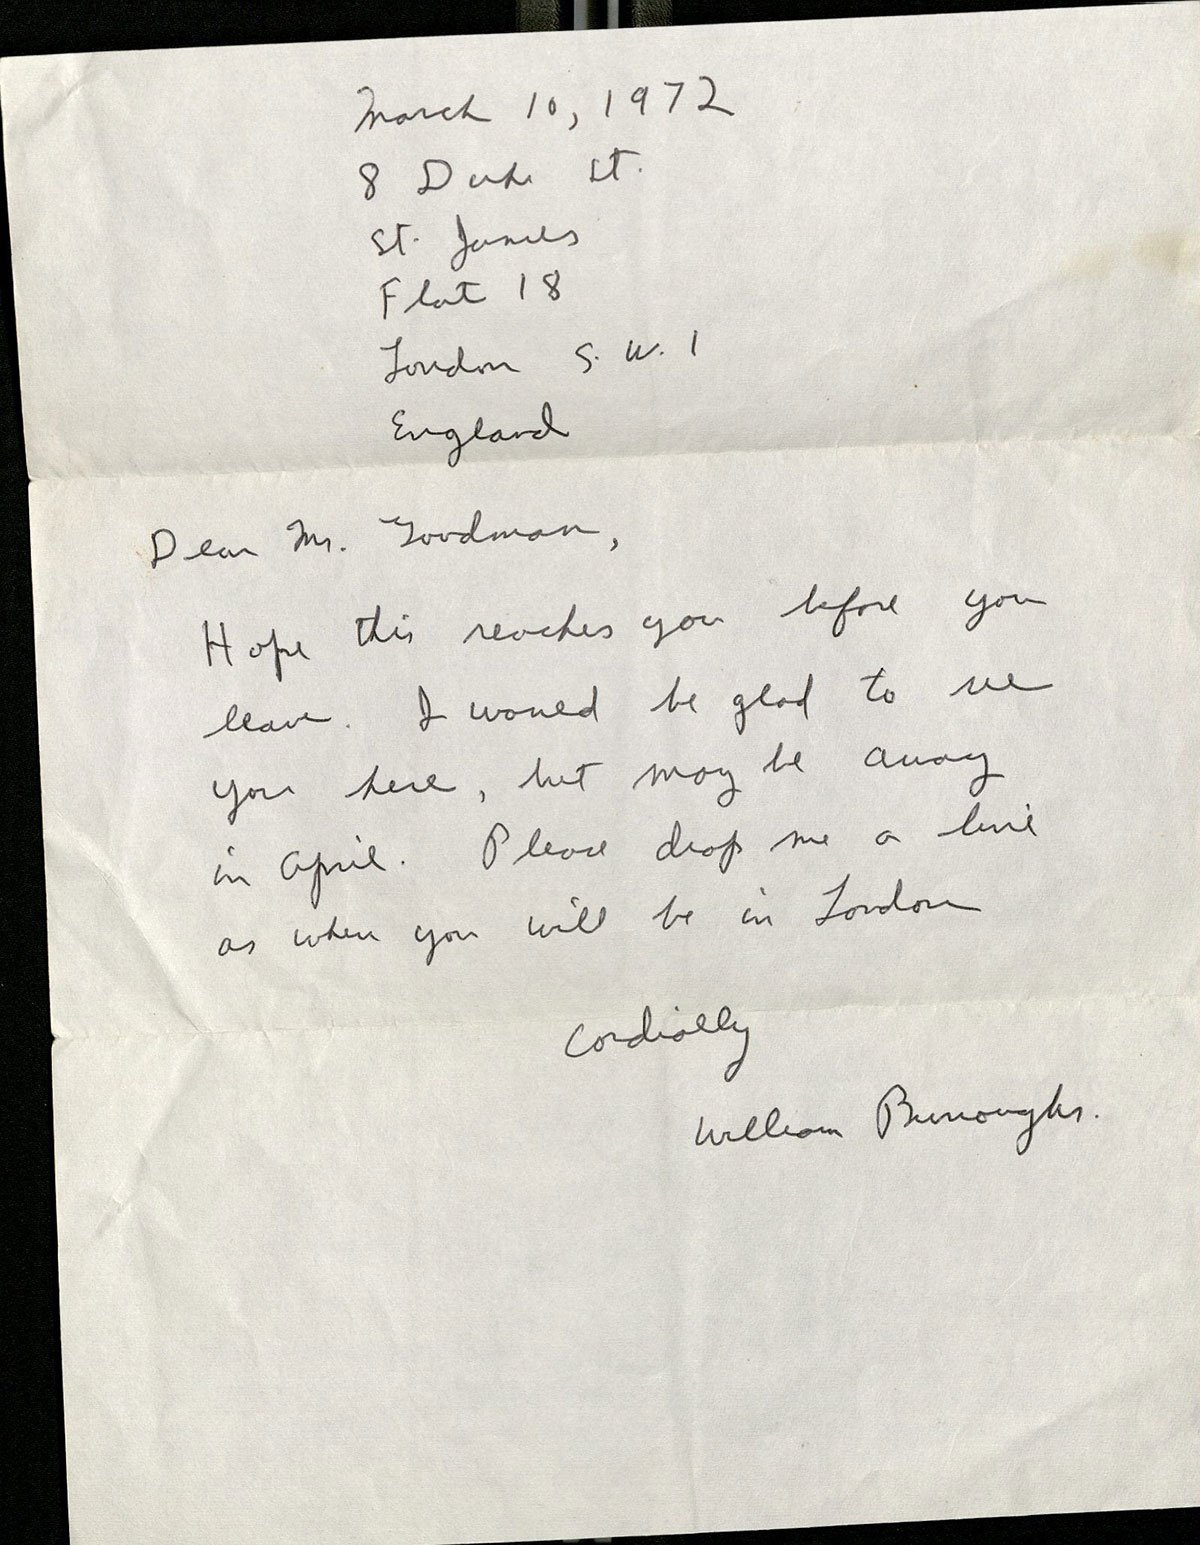 March 10, 1972
8 Duke St.
St. James
Flat 18
London S. W. 1
England
Dear Mr. Goodman,
Hope this reaches you before you
leave. I would be glad to see
you here, but may be away
in April. Please drop me a line
as when you will be in London
Cordially
William Burroughs.